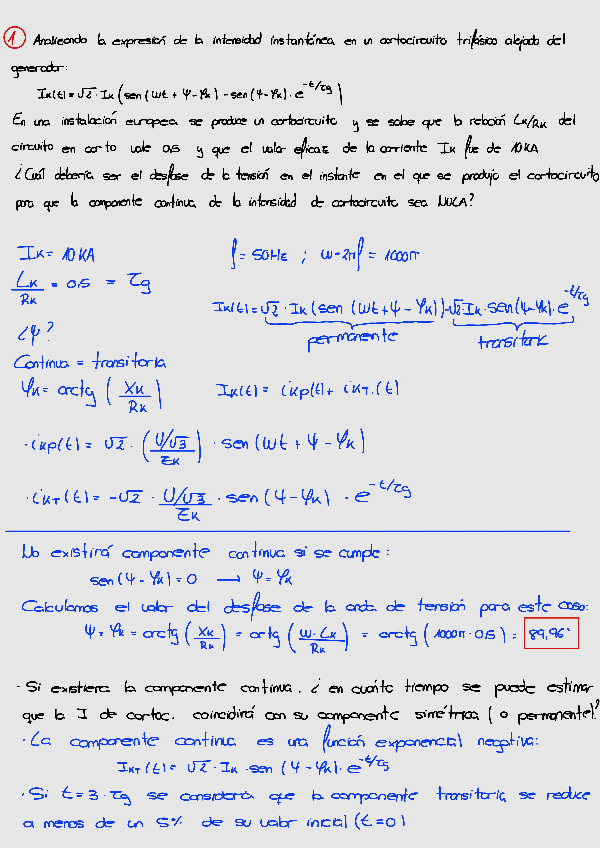 1 Analizando la expresión de la intensidad instantánea en un cortocircuito trifásico alejado del
generador:
Ik(t)=√2·Ik(sen(wt+Ψ-φk)-sen(Ψ-φk)·e^-t/τg)
En una instalación europea se produce un cortocircuito y se sabe que la relación Lk/Rk del
circuito en corto vale 0,5 y que el valor eficaz de la corriente Ik fue de 10KA
¿Cuál debería ser el desfase de la tensión en el instante en el que se produjo el cortocircuito
para que la componente continua de la intensidad de cortocircuito sea NULA?
Ik= 10 KA
f=50Hz ; w=2πf = 100π
Lk/Rk = 0,5 = τg
Ik(t)=√2·Ik(sen(wt+Ψ-φk))-√2·Ik·sen(Ψ-φk)·e^-t/τg
permanente transitoria
¿Ψ?
Continua = transitoria
φk= arctg (Xk/Rk) Ik(t)= ikp(t)+ ikT.(t)
·ikp(t)= √2·(U/√3/Zk)·sen(wt+Ψ-φk)
·ikT(t)=-√2·U/√3/Zk·sen(Ψ-φk)·e^-t/τg
No existirá componente continua si se cumple:
sen(Ψ-φk)=0 → Ψ=φk
Calculamos el valor del desfase de la onda de tensión para este caso:
Ψ=φk= arctg(Xk/Rk) = arctg(w·Lk/Rk) = arctg(100π·0,5)= 89,96°
·Si existiera la componente continua. ¿en cuánto tiempo se puede estimar
que la I de cortoc. coincidirá con su componente simétrica (o permanente)?
·La componente continua es una función exponencial negativa:
IkT(t)= √2·Ik·sen(Ψ-φk)·e^-t/τg
·Si t=3·τg se considera que la componente transitoria se reduce
a menos de un 5% de su valor inicial (t=0)